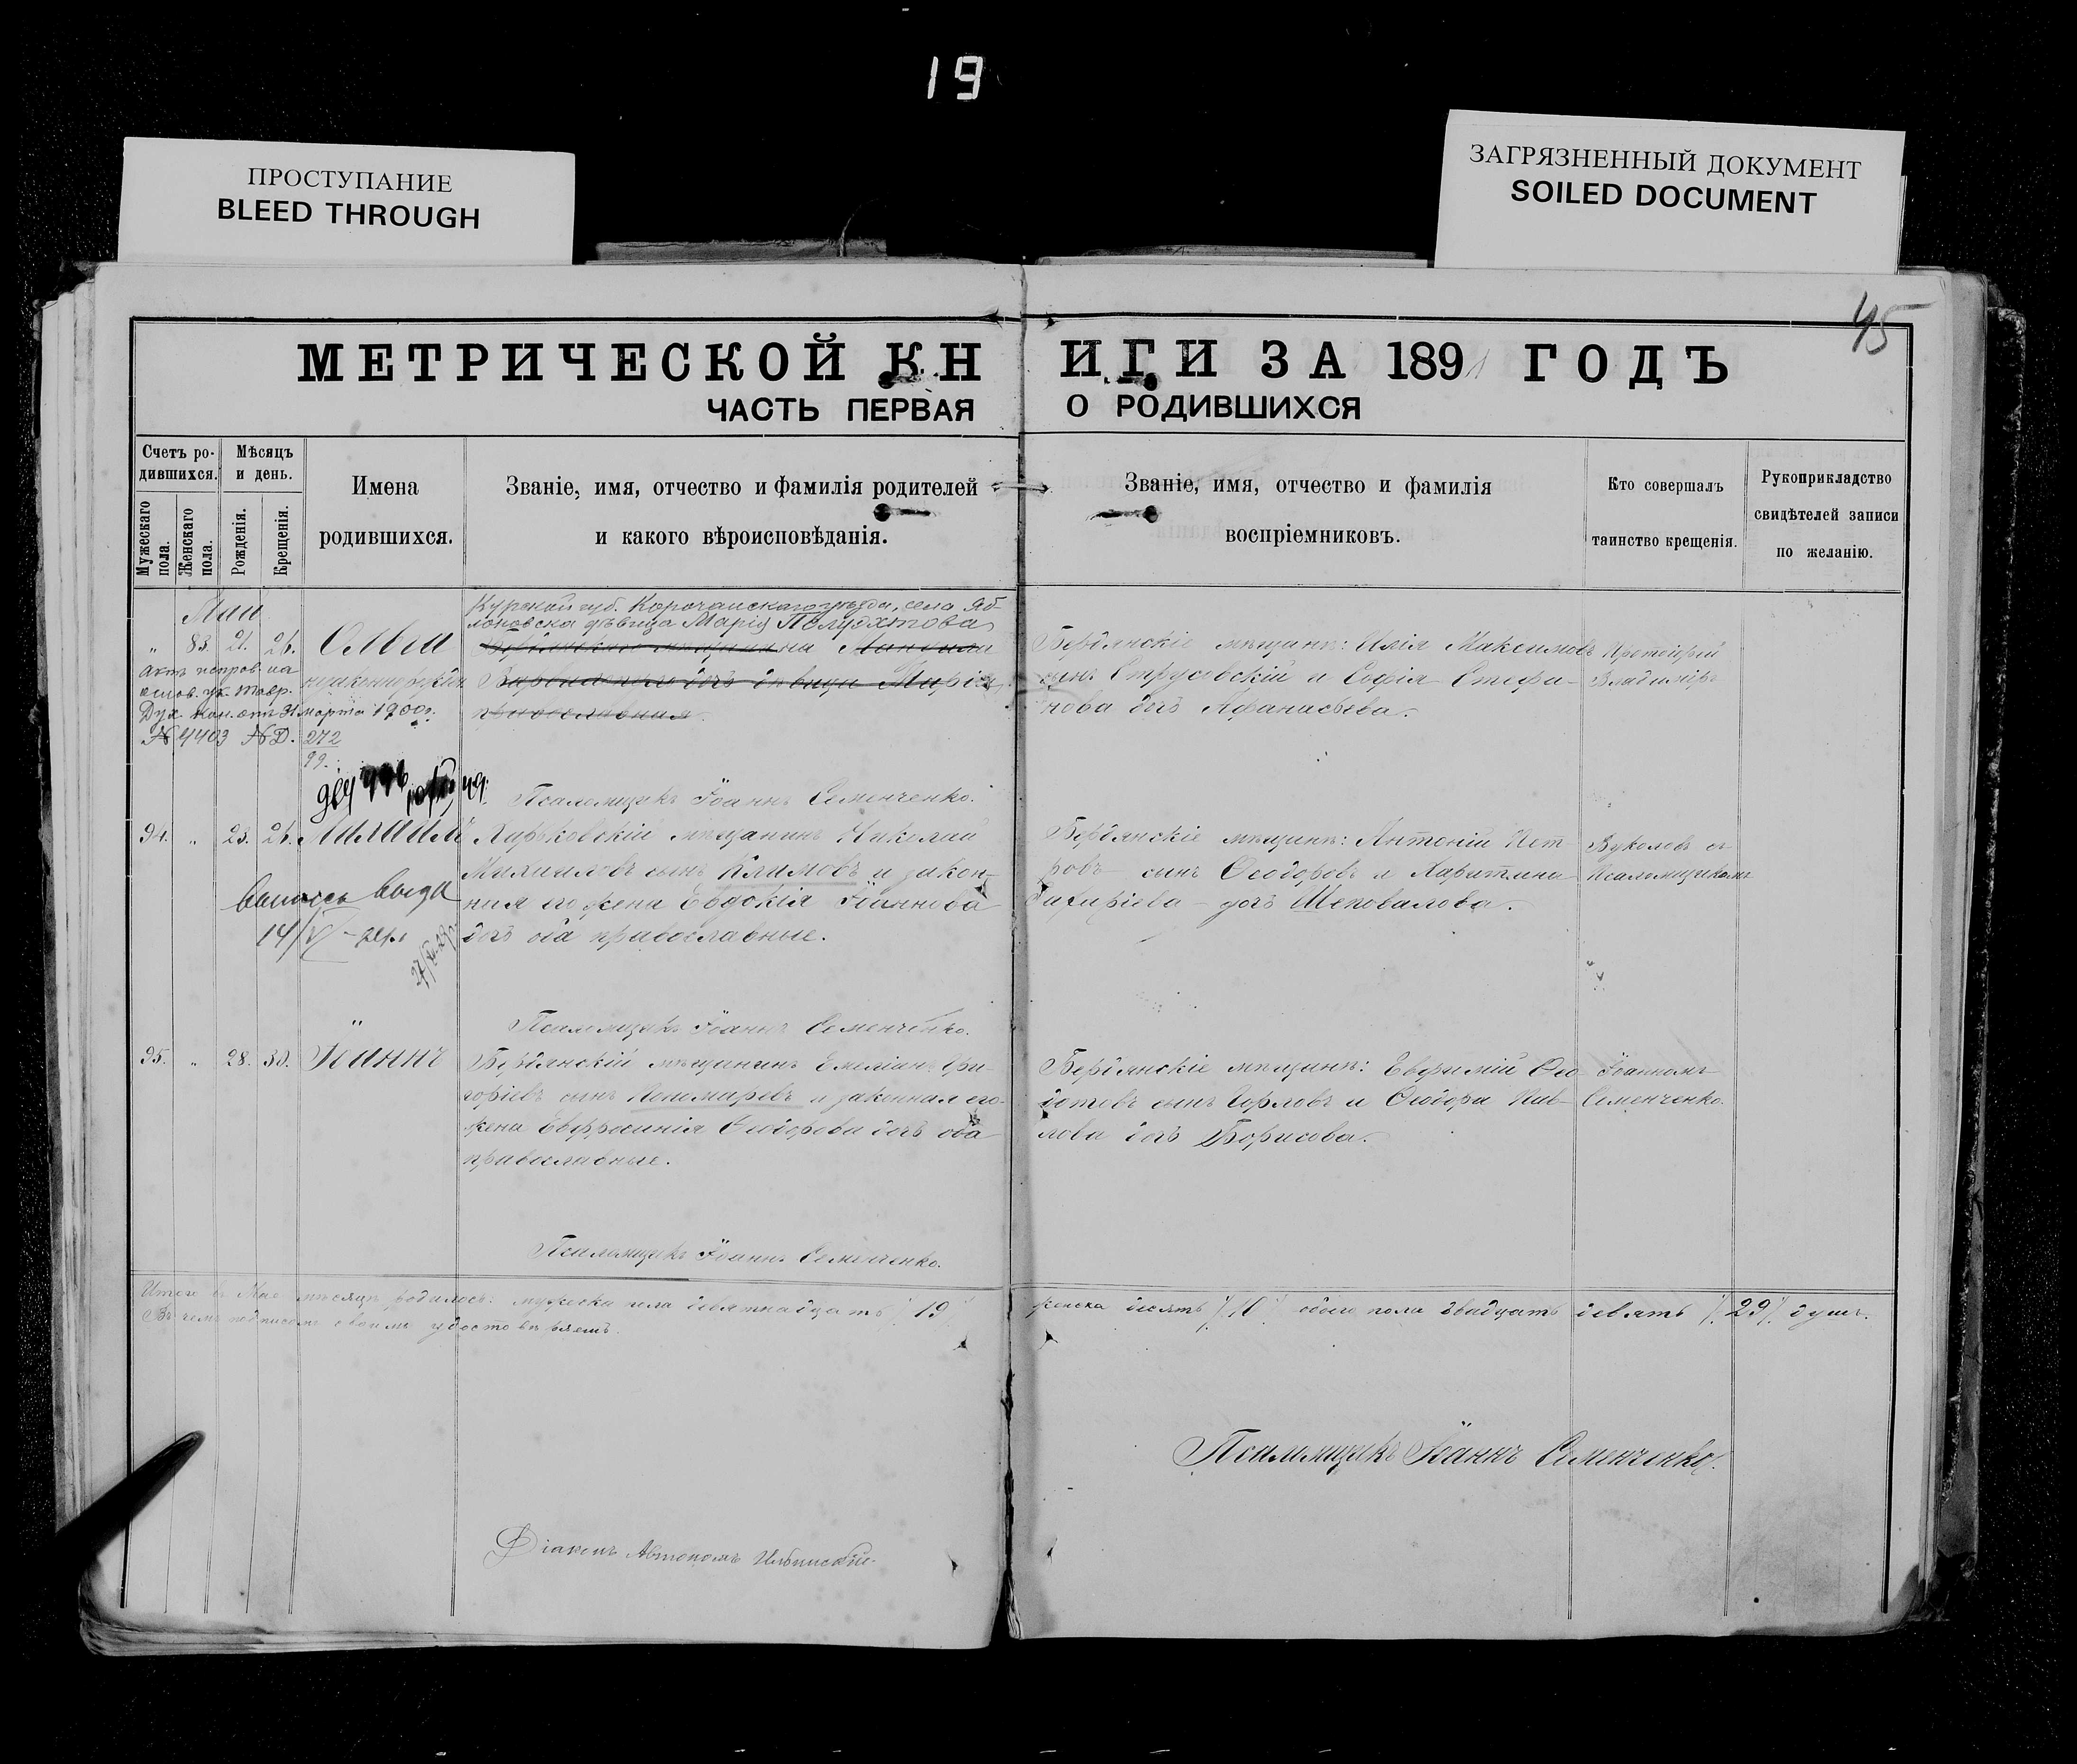 19
ПРОСТУПАНИЕ
BLEED THROUGH
ЗАГРЯЗНЕННЫЙ ДОКУМЕНТ
SOILED DOCUMENT
45
МЕТРИЧЕСКОЙ КНИГИ ЗА 1891 ГОДЪ
ЧАСТЬ ПЕРВАЯ О РОДИВШИХСЯ
Счетъ ро-
дившихся.
Мужескаго пола.
Женскаго пола.
Мѣсяцъ
и день.
Рожденія.
Крещенія.
Имена
родившихся.
Званіе, имя, отчество и фамилія родителей
и какого вѣроисповѣданія.
Званіе, имя, отчество и фамилія
воспріемниковъ.
Кто совершалъ
таинство крещенія.
Рукоприкладство
свидѣтелей записи
по желанію.
Маи
Курской губ. Корочанскаго уѣзда, села Яб-
лоновска дѣвица Марія Полуэктова
" 83. 21. 26.
Актъ исправ. на
основ. ук. Тавр.
Дух. кон. отъ 31 марта 1900 г.
№ 4403 № D. 272
99.
дочь дѣвица Марія
православная
Бердянскіе мѣщане: Илія Максимовъ
сынъ Струсовскій и Софія Стефа-
нова дочь Афанасьева.
Протоіерей
Владиміръ
Псаломщикъ Іоаннъ Семенченко.
94. " 23. 26.
Харьковскій мѣщанинъ Николай
Михаиловъ сынъ Климовъ и закон-
ная его жена Евдокія Іоаннова
дочь оба православные.
Бердянскіе мѣщане: Антоній Пет-
ровъ сынъ Ѳеодоровъ и Харитина
дочь Шеповалова.
Вуколовъ съ
Псаломщикомъ
Псаломщикъ Іоаннъ Семенченко.
95. " 28. 30. Іоаннъ
Бердянскій мѣщанинъ Емеліанъ Гри-
горіевъ сынъ и законная его
жена Евфросинія Ѳеодорова дочь оба
православные.
Бердянскіе мѣщане: Евфимій Ѳео-
дотовъ сынъ Горловъ и Ѳеодора Пав-
лова дочь Борисова.
Іоанномъ
Семенченко.
Псаломщикъ Іоаннъ Семенченко.
Итого въ Маѣ мѣсяцѣ родилось: мужеска пола девятнадцать /19/ женска десять /10/ обоего пола двадцать девять /29/ душъ.
Въ чемъ подписомъ своимъ удостовѣряемъ.
Псаломщикъ Іоаннъ Семенченко.
Діаконъ Автономъ